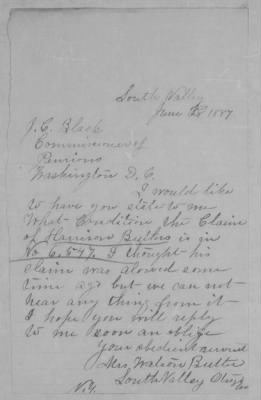 South Valley
June 1887
J. C. Black
Commissioner of
Pensions
Washington D. C.
I would like
to have you state to me
What Condition the Claim
of Harrison Butler is in
No 6,547, I thought his
claim was alowed some
time ago but we can not
hear any thing from it
I hope you will reply
to me soon an oblige
your obedient servent
Mrs Watson Butler
South Valley Otsego
Co
N.Y.